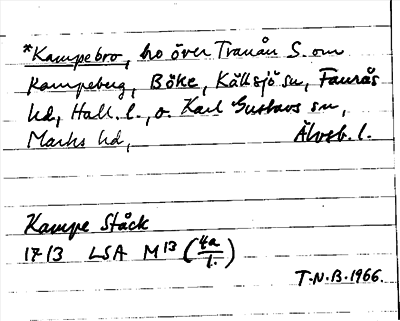 *Kampebro, bro över Tranån S. om
Kampeberg, Böke, Källsjö sn, Faurås
hd, Hall. l., o. Karl Gustavs sn,
Marks hd, Älvsb. l.
Kampe Ståck
1713 LSA M13 (4a/1.)
T.N.B. 1966.